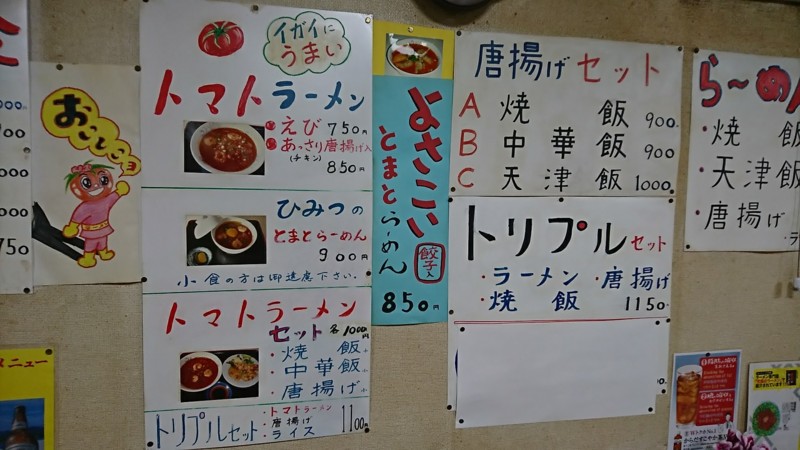 000
900
000
000
750
おこしこヨ
イガイに
うまい
トマトラーメン
えび 750円
あっさり唐揚げ入
(チキン)
850円
ひみつの
とまとらーめん
900円
小食の方は御遠慮下さい。
トマトラーメン
セット 各1000円
・焼飯小
・中華飯小
・唐揚げ小
トリプルセット
・トマトラーメン
唐揚げ
・ライス
1100円
よさこい
とまとらーめん
餃子入
850円
唐揚げセット
A 焼飯 900.
B 中華飯 900
C 天津飯 1000.
トリプルセット
・ラーメン・唐揚げ
・焼飯 1150.
ら〜めん
・焼飯
・天津飯
・唐揚げ
メニュー